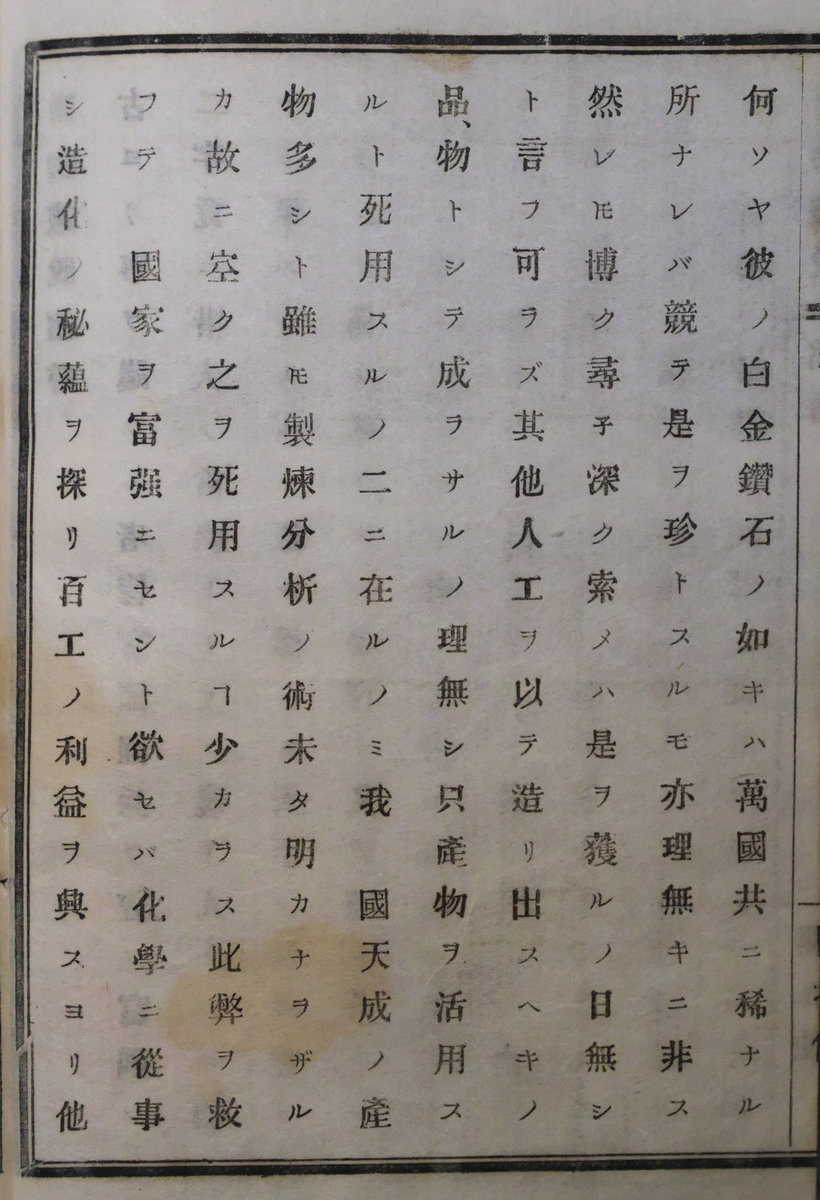 何ソヤ彼ノ白金鑽石ノ如キハ萬國共ニ稀ナル
所ナレバ競テ是ヲ珍トスルモ亦理無キニ非ス
然レ𪜈博ク尋子深ク索メハ是ヲ獲ルノ日無シ
ト言フ可ラズ其他人工ヲ以テ造リ出スヘキノ
品、物トシテ成ラサルノ理無シ只產物ヲ活用ス
ルト死用スルノ二ニ在ルノミ我 國天成ノ產
物多シト雖𪜈製煉分析ノ術未タ明カナラザル
カ故ニ空ク之ヲ死用スルヿ少カラス此弊ヲ救
フテ 國家ヲ富强ニセント欲セバ化學ニ從事
シ造化ノ秘蘊ヲ探リ百工ノ利益ヲ興スヨリ他